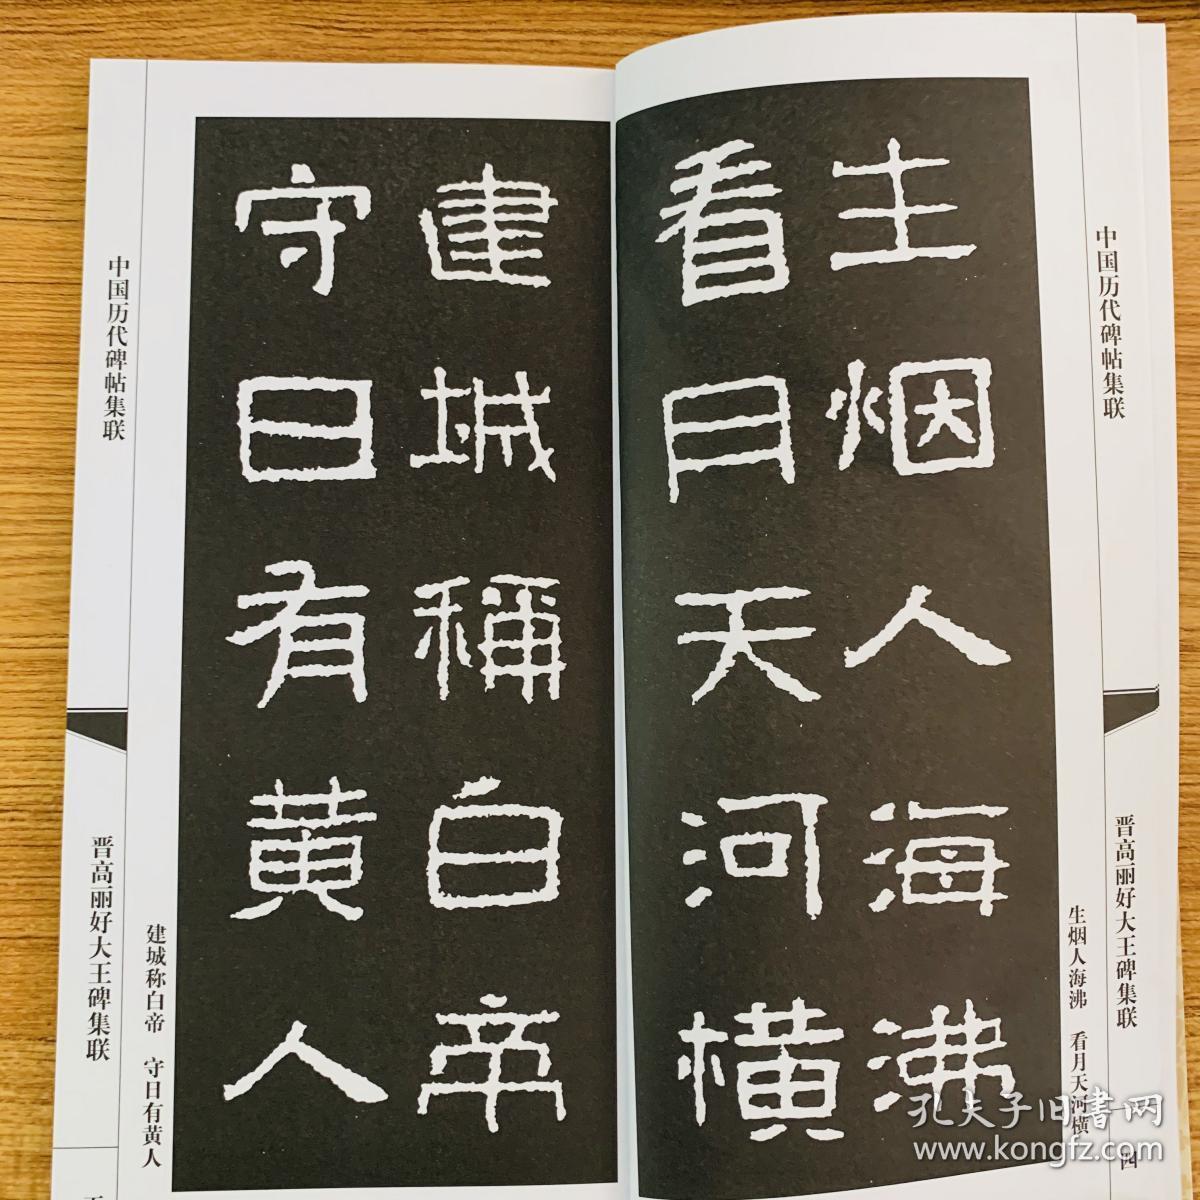 中国历代碑帖集联
晋高丽好大王碑集联
四
生烟人海沸
看月天河横
生烟人海沸 看月天河横
建城稱白帝
守日有黄人
建城称白帝 守日有黄人
中国历代碑帖集联
晋高丽好大王碑集联
孔夫子旧书网
www.kongfz.com